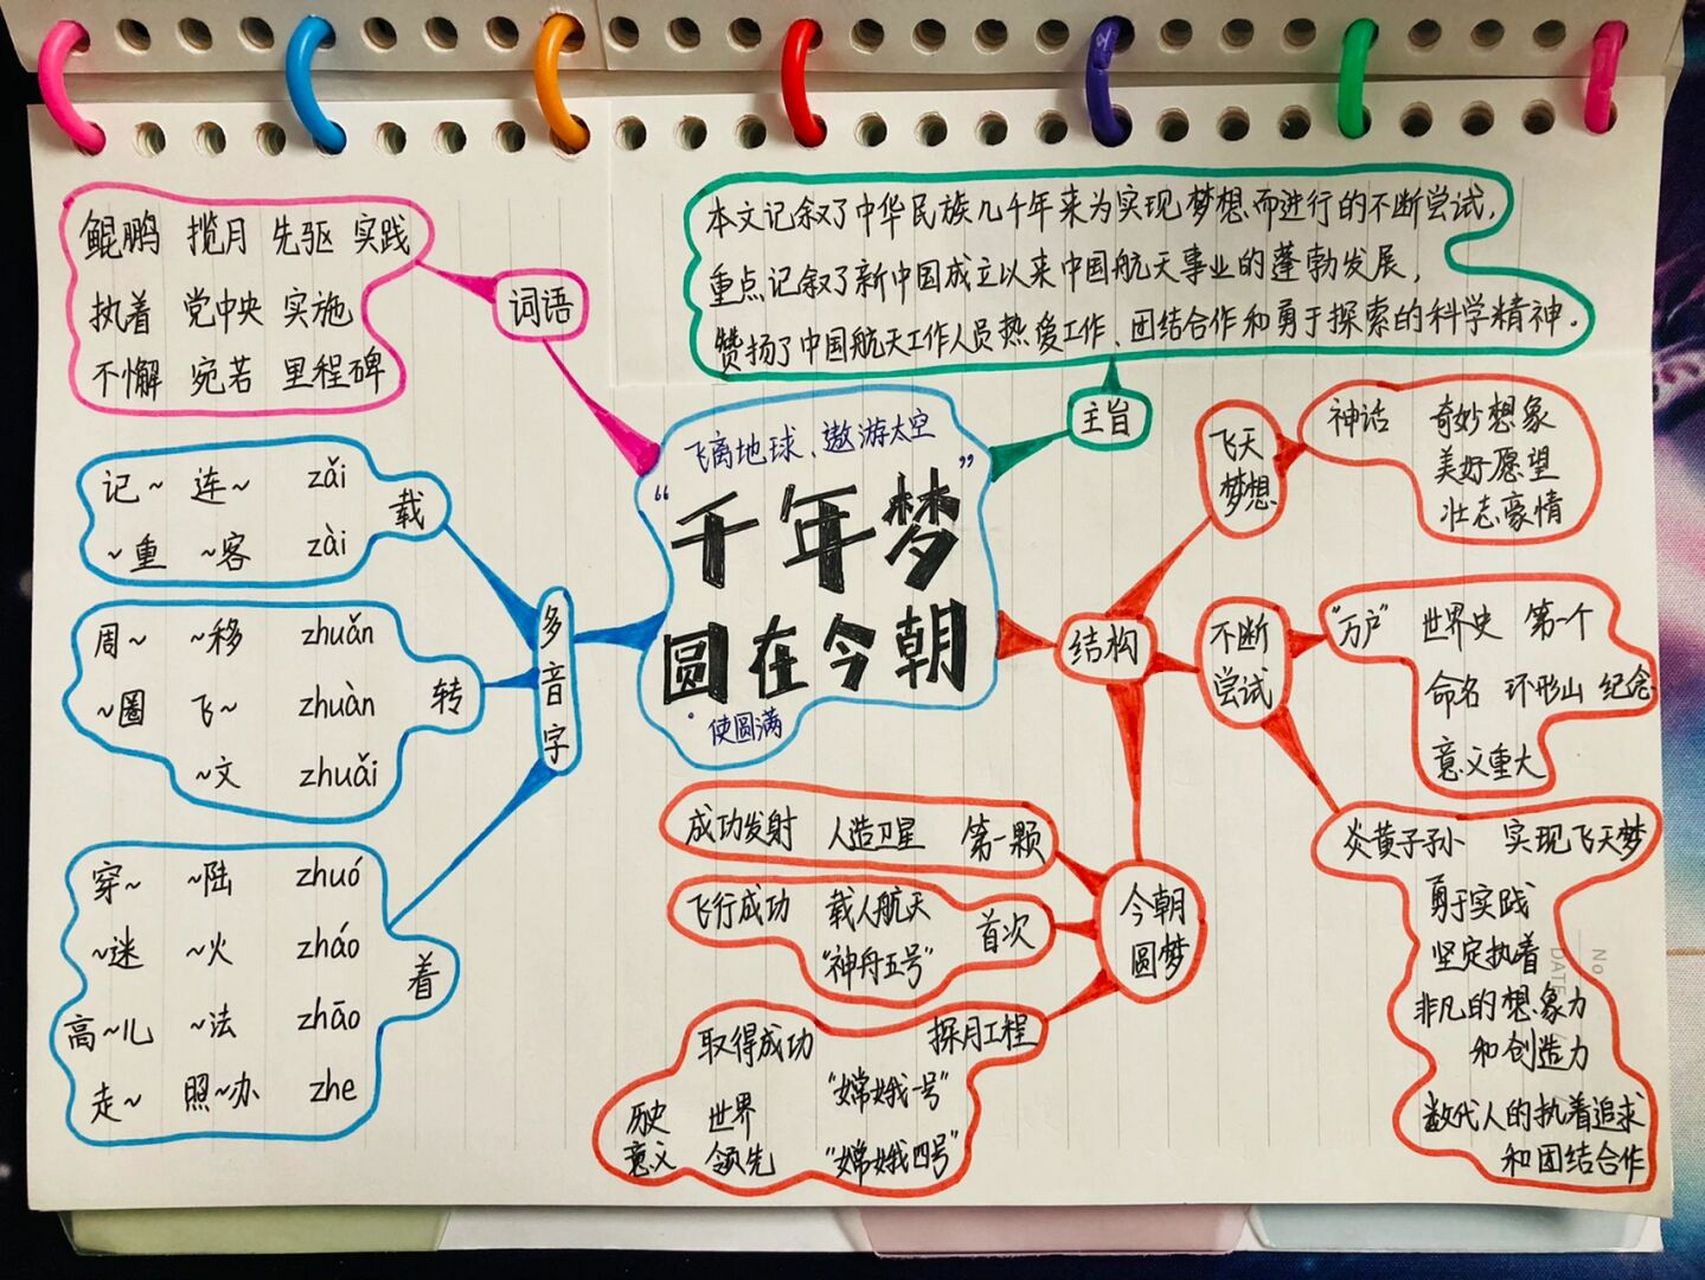 鲲鹏 揽月 先驱 实践
执着 党中央 实施
不懈 宛若 里程碑
词语
本文记叙了中华民族几千年来为实现梦想而进行的不断尝试,
重点记叙了新中国成立以来中国航天事业的蓬勃发展,
赞扬了中国航天工作人员热爱工作、团结合作和勇于探索的科学精神。
主旨
飞离地球、遨游太空
“千年梦”
圆在今朝
使圆满
多音字
记~ 连~ zǎi
~重 ~客 zài
载
周~ ~移 zhuǎn
~圈 飞~ zhuàn
~文 zhuǎi
转
穿~ ~陆 zhuó
~迷 ~火 zháo
高~儿 ~法 zhāo
走~ 照~办 zhe
着
结构
飞天
梦想
神话 奇妙想象
美好愿望
壮志豪情
不断
尝试
“万户” 世界史 第一个
命名 环形山 纪念
意义重大
炎黄子孙 实现飞天梦
勇于实践
坚定执着
非凡的想象力
和创造力
数代人的执着追求
和团结合作
今朝
圆梦
成功发射 人造卫星 第一颗
飞行成功 载人航天 首次
“神舟五号”
取得成功 探月工程
“嫦娥一号”
历史 世界
意义 领先 “嫦娥四号”
No
DATE